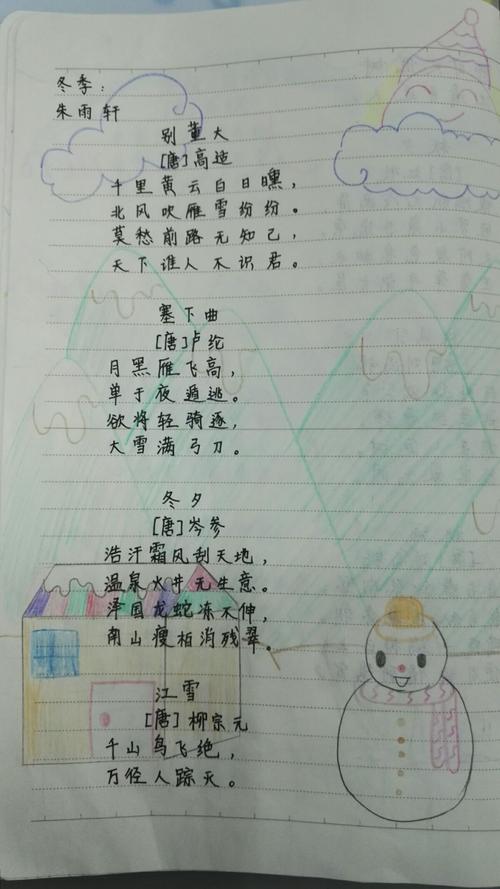 冬季：
朱雨轩
别董大
[唐]高适
千里黄云白日曛，
北风吹雁雪纷纷。
莫愁前路无知己，
天下谁人不识君。
塞下曲
[唐]卢纶
月黑雁飞高，
单于夜遁逃。
欲将轻骑逐，
大雪满弓刀。
冬夕
[唐]岑参
浩汗霜风刮天地，
温泉火井无生意。
泽国龙蛇冻不伸，
南山瘦柏消残翠。
江雪
[唐]柳宗元
千山鸟飞绝，
万径人踪灭。